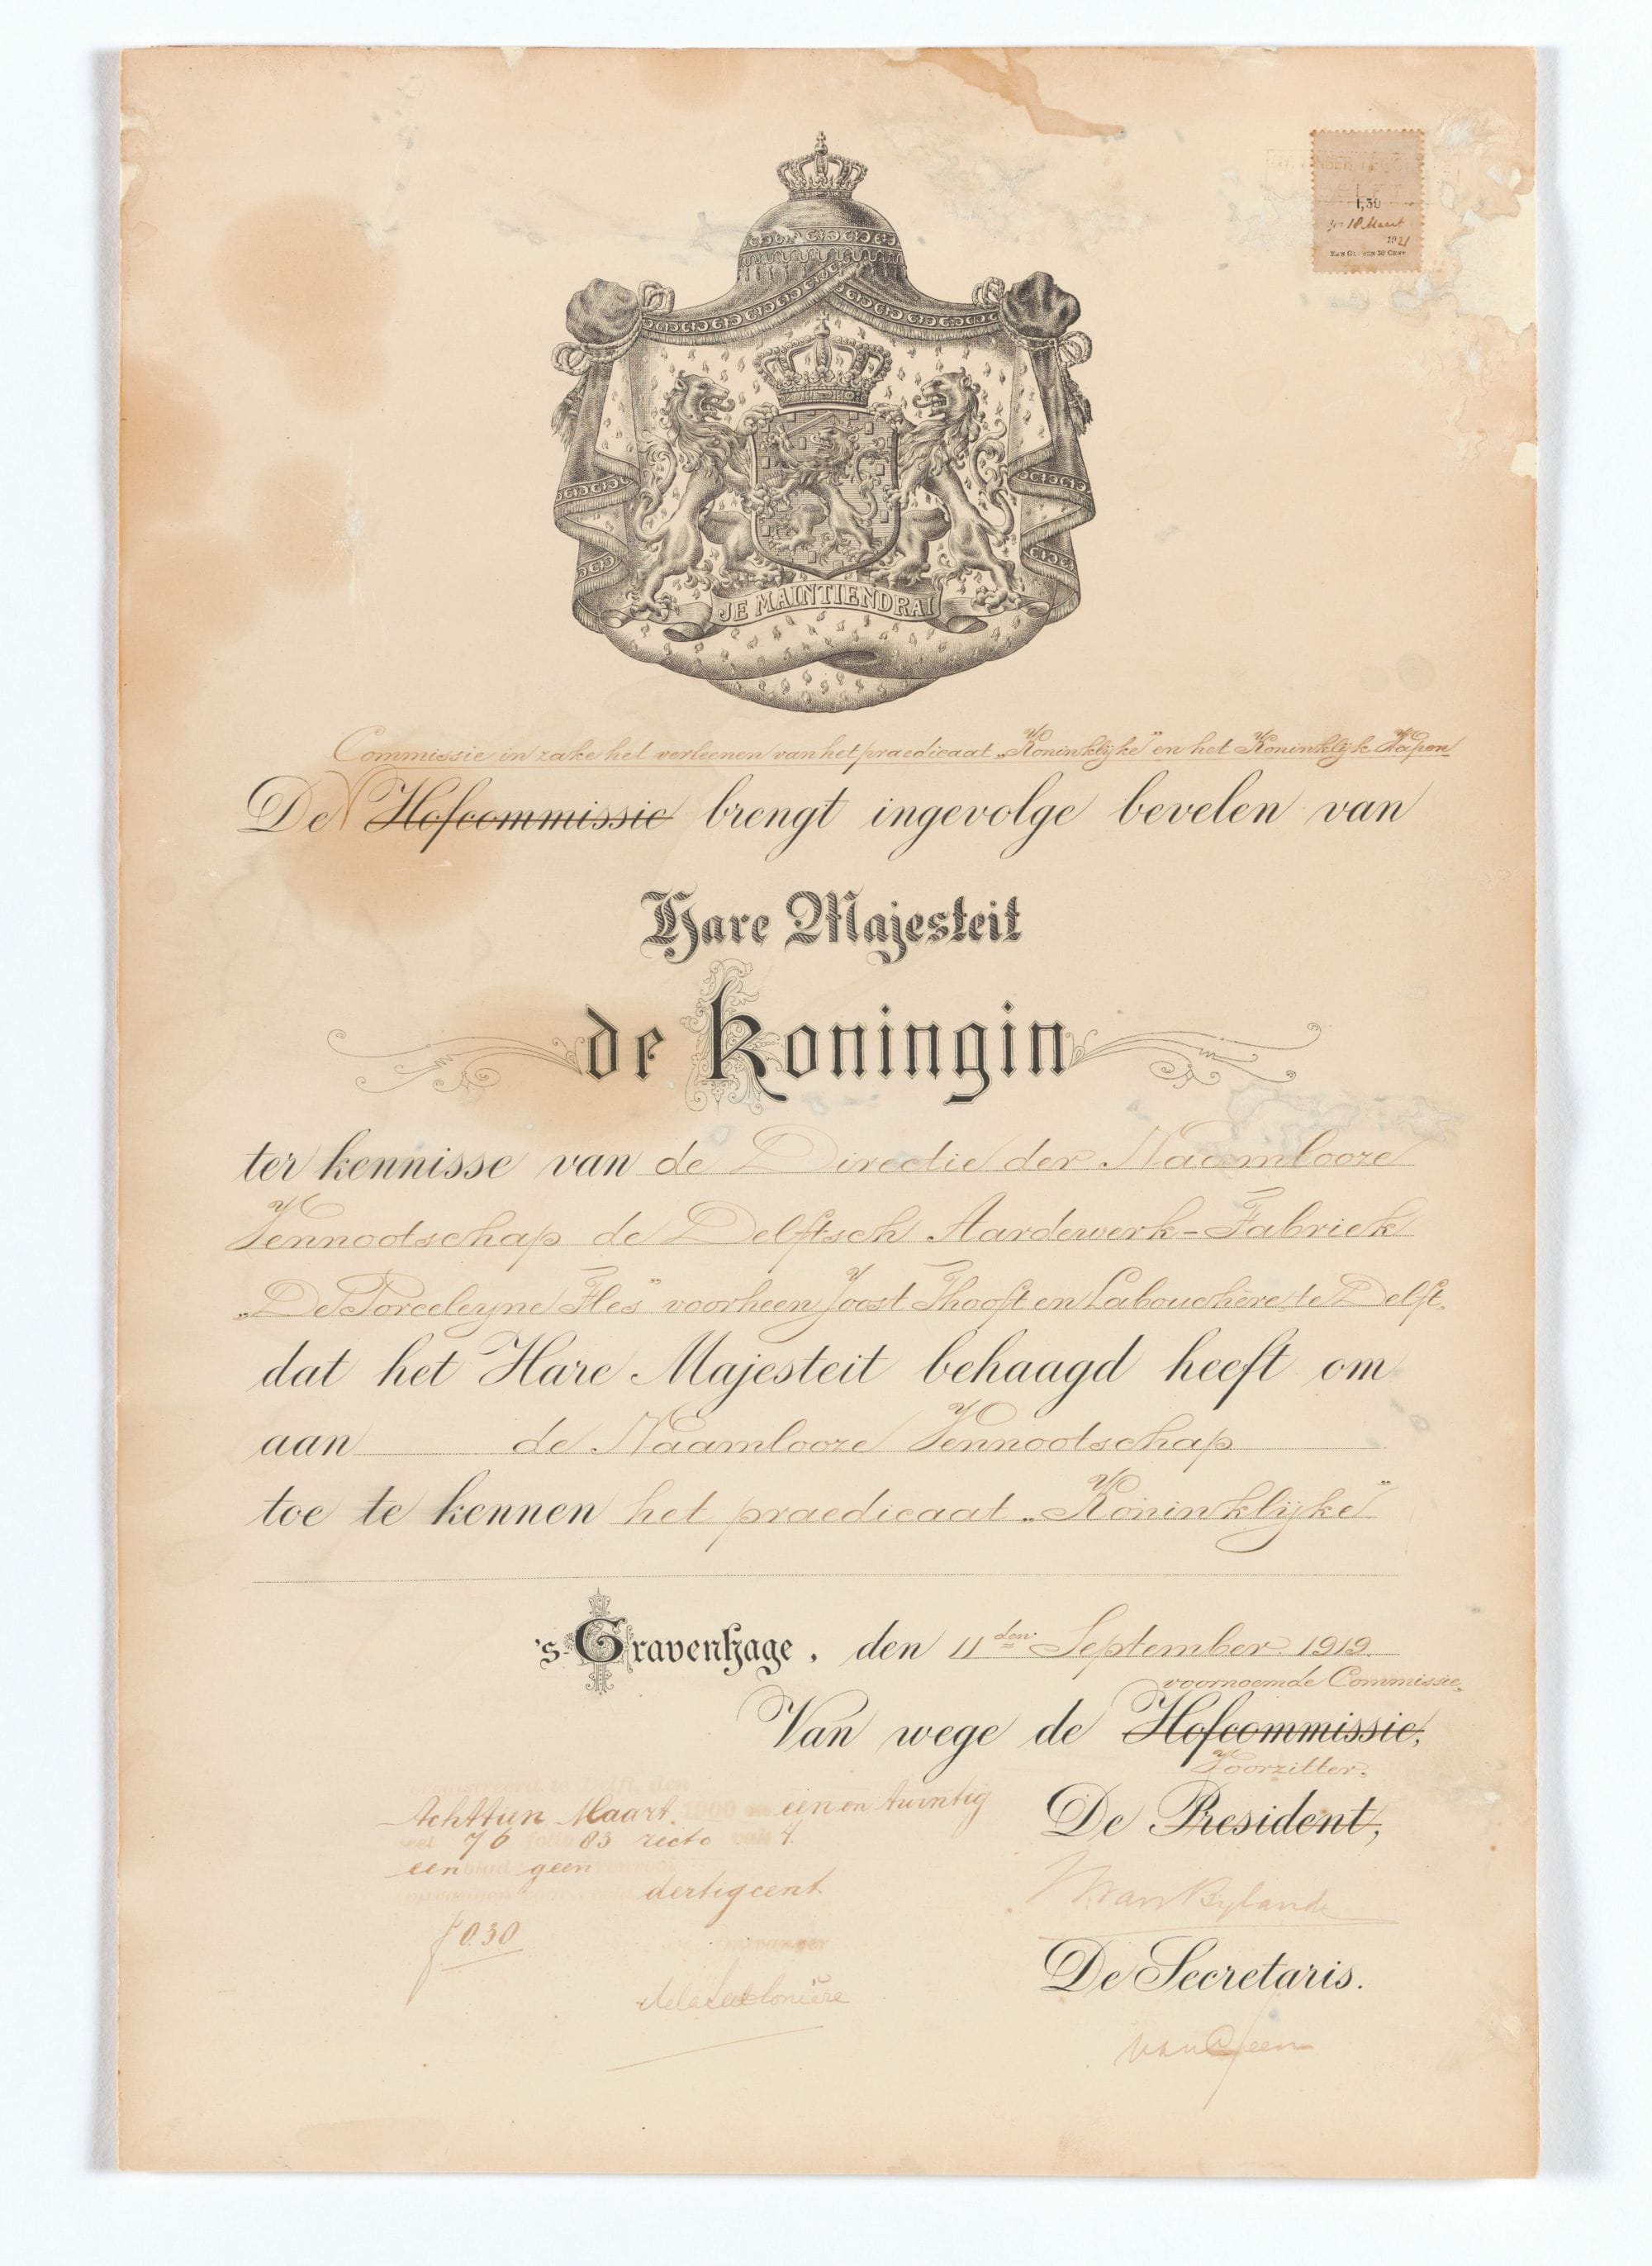 1,50
18 Maart
1921
EEN GULDEN 50 CENT
JE MAINTIENDRAI
Commissie in zake het verleenen van het praedicaat „Koninklijke" en het Koninklijk Wapen
De Hofcommissie brengt ingevolge bevelen van
Hare Majesteit
de Koningin
ter kennisse van de Directie der Naamlooze
Vennootschap de Delftsch Aardewerk-Fabriek
„De Porceleyne Fles" voorheen Joost Thooft en Labouchère, te Delft,
dat het Hare Majesteit behaagd heeft om
aan de Naamlooze Vennootschap
toe te kennen het praedicaat „Koninklijke"
's-Gravenhage, den 11den September 1919.
voornoemde Commissie,
Van wege de Hofcommissie,
Voorzitter,
De President,
van Bylandt
De Secretaris.
van Geen
Geregistreerd te Delft, den
Achttien Maart 1900 een en twintig
deel 76 folio 83 recto vak 4
een blad geen
dertig cent
f 0.30
Ontvanger